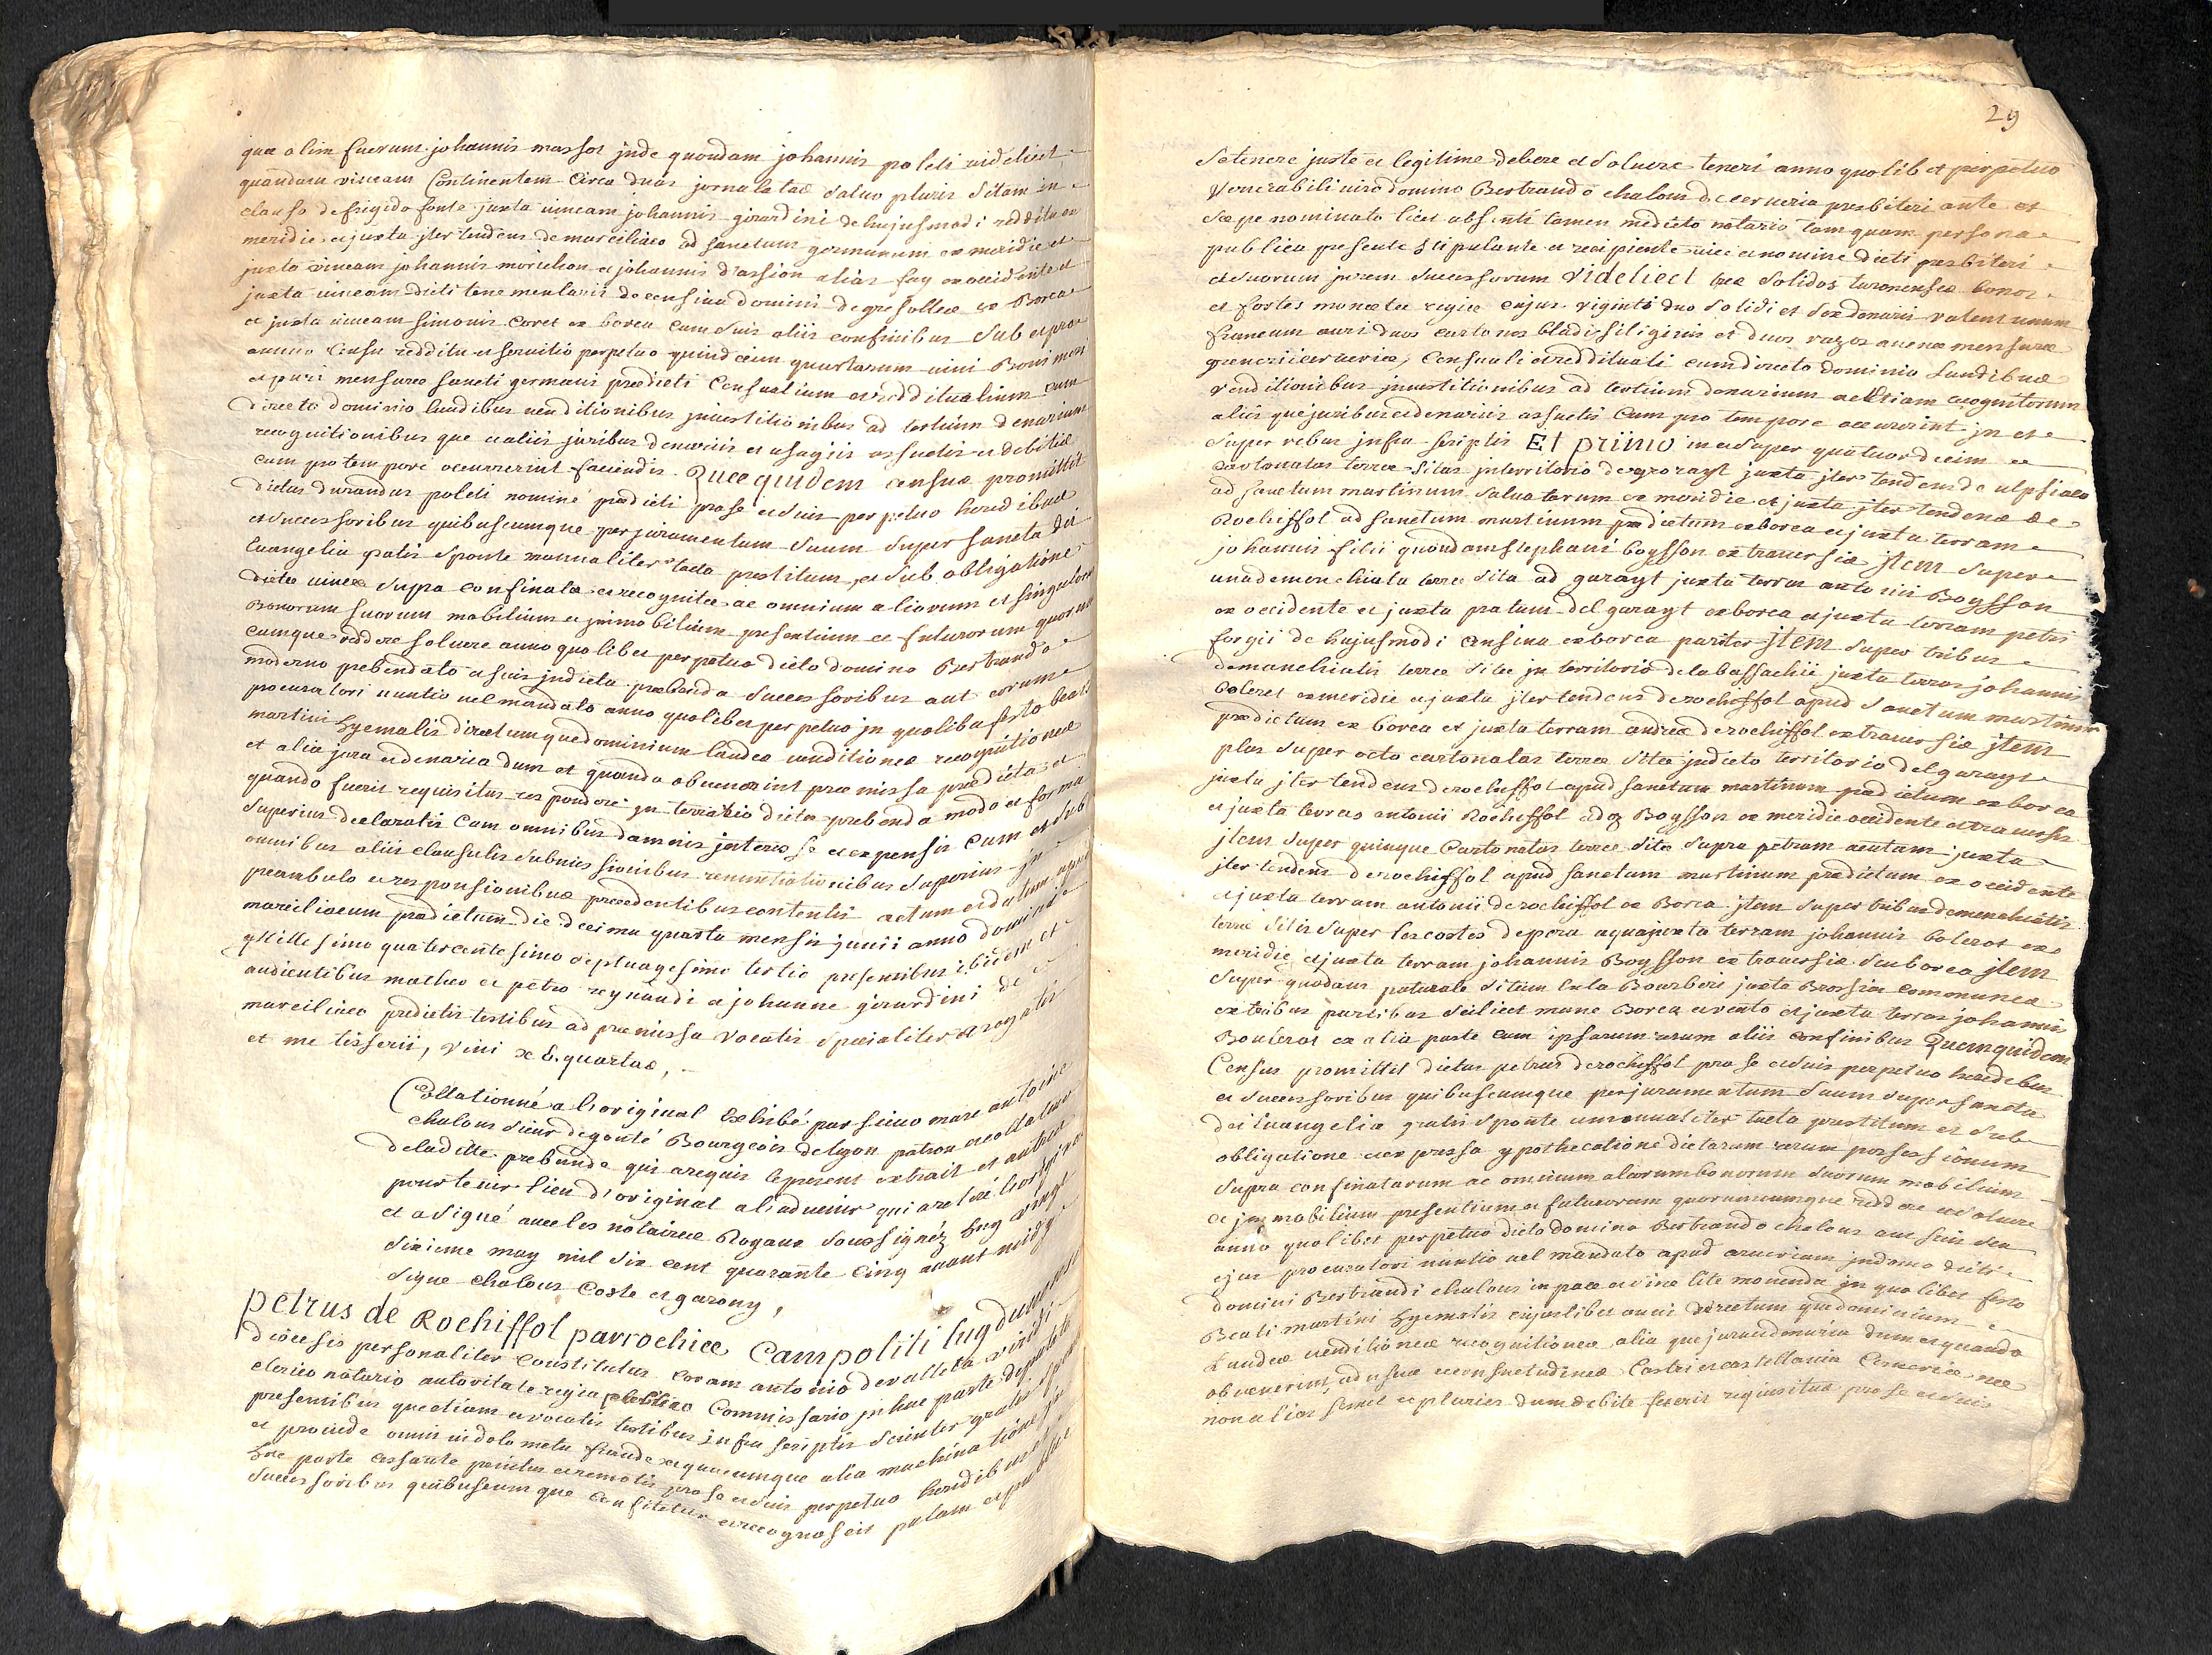 quae olim fuerunt johannis massot jnde quondam johannis poleti videlicet
quandam vineam Continentem Circa duas jornalatas saluo pluris sitam in
clauso de frigido fonte juxta vineam johannis girardini de hujusmodi redditu ex
meridie et juxta jter tendens de marciliaco ad sanctum germanum ex meridie et
juxta vineam johannis morichon et johannis d'assion alias fay ex occidente et
juxta vineam dicti tenementarii de censiua domini de gresolles ex Borea
et juxta vineam simonis Coret ex borea cum suis aliis confinibus sub et pro
annuo Censu redditu et seruitio perpetuo quindecim quartarum vini Boni meri
et puri mensurae sancti germani praedicti Censualium et redditualium cum
directo dominio laudibus venditionibus jnuestitionibus ad tertium denarium
recognitionibus que et aliis juribus denariis et usagiis assuetis et debitis
cum pro tempore occurrerint faciendis. Quae quidem censum promittit
dictus durandus poleti nomine praedicti pro se et suis perpetuo heredibus
et successoribus quibuscumque per juramentum suum super sancta dei
Euangelia gratis sponte manualiter tacta prestitum, et sub obligatione
dictae vineae supra confinatae et recognitae ac omnium aliorum et singulorum
Bonorum suorum mobilium et jmmobilium presentium et futurorum quorum
cumque reddere soluere anno quolibet perpetuo dicto domino Bertrando
moderno prebendato et suis jn dicta prebenda successoribus aut eorum
procuratori nuntio vel mandato anno quolibet perpetuo jn quolibet festo beati
martini hyemalis directumque dominium laudes venditiones recognitiones
et alia jura et denaria dum et quando obuenerint praemissa praedicta et
quando fuerit requisitus respondere jn terrario dictae prebendae modo et forma
superius declaratis Cum omnibus damnis jnteresse et expensis Cum et sub
omnibus aliis clausulis submissionibus renuntiationibus superius jn
preambulo et responsionibus precedentibus contentis actum et datum apud
marciliacum praedictum die decima quarta mensis junii anno domini
Millesimo quatercentesimo septuagesimo tertio presentibus ibidem et
audientibus matheo et petro reynaudi et johanne girardini de
marciliaco predictis testibus ad praemissa vocatis specialiter et rogatis
et me tisserii, vini x 6. quartas,
Collationné a l'original Exhibé par sieur marc antoine
chalous sieur de gouté Bourgeois de lyon patron et collateur
de ladite prebande qui a requis le present extrait et
pour tenir lieu d'original a l'aduenir qui a retiré l'original
et a signé auec les notaires Royaux soussignéz huy vingt
sixieme may mil six cent quarante Cinq auant midy
signe chalous Coste et garony,
petrus de Rochiffol parrochiae Campoliti lugdunensis
diocesis personaliter Constitutus coram antonio de valleta viridi
clerico notario autoritate regia publico Commissario jn hac parte deputato
presentibus que etiam et vocatis testibus jnfra scriptis scienter gratis sponte
et prouide omni vi dolo metu fraude et quacumque alia machinatione jn
hac parte cessante penitus et remotis pro se et suis perpetuo heredibus et
successoribus quibuscumque Confitetur et recognoscit palam et publice
29
se tenere juste et legitime debere et soluere teneri anno quolibet perpetuo
Venerabili viro domino Bertrando chalous de cerueria presbiteri ante et
saepe nominato licet absenti tamen me dicto notario tamquam persona
publica presente stipulante et recipiente vice et nomine dicti presbiteri
et suorum jn rem successorum Videlicet tres solidos turonenses bonos
et fortes monetae regiae Cujus viginti duo solidi et sex denarii valent unum
francum auri duos cartonos bladi siliginis et duos razos auenae mensurae
granerii cerueriae, Censuali et reddituali cum directo dominio laudibus
venditionibus jnuestitionibus ad tertium denarium ac etiam recognitorum
aliis que juribus et denariis assuetis Cum pro tempore occurrerint jn et
super rebus jnfra scriptis Et primo in et super quatuordecim
cartonatas terrae sitas jn territorio de grozayt juxta jter tendens de alpsiaco
ad sanctum martinum saluatarum ex meridie et juxta jter tendens de
Rochiffol ad sanctum martinum praedictum ex borea et juxta terram
johannis filii quondam stephani boysson ex trauersia jtem super
una demenchiata terrae sita ad garayt juxta terram antonii Boysson
ex occidente et juxta pratum del garayt ex borea et juxta terram petri
forgii de hujusmodi Censiua ex borea pariter Jtem super tribus
demanchiatis terrae sitae jn territorio de la bassachii juxta terras johannis
boleret ex meridie et juxta jter tendens de rochiffol apud sanctum martinum
praedictum ex borea et juxta terram andreae de rochiffol ex trauersia jtem
plus super octo cartonatas terrae sitae jn dicto territorio del garayt
juxta jter tendens de rochiffol apud sanctum martinum praedictum ex borea
et juxta terras antonii Rochiffol et Boysson ex meridie occidente et trauersia
jtem super quinque Cartonatas terrae sitae supra petram acutam juxta
jter tendens de rochiffol apud sanctum martinum praedictum ex occidente
et juxta terram antonii de rochiffol ex Borea jtem super tribus demenchiatis
terrae sitis super les costes de pera aqua juxta terram johannis boleret ex
meridie et juxta terram johannis Boysson ex trauersia seu borea jtem
super quodam paturale situm Exta Bourberi juxta Brossia Communes
ex tribus partibus scilicet mane Borea et vento et juxta terras johannis
Bouleret ex alia parte cum ipsarum rerum aliis confinibus Quemquidem
Censum promittit dictus petrus de rochiffol pro se et suis perpetuo heredibus
et successoribus quibuscumque per juramentum suum super sancta
dei Euangelia gratis sponte manualiter tacta prestitum et sub
obligatione et expressa ypothecatione dictarum rerum possessionum
supra confinatarum ac omnium aliorum bonorum suorum mobilium
et jmmobilium presentium et futurorum quorumcumque reddere et soluere
anno quolibet perpetuo dicto domino Bertrando chalous aut suis seu
ejus procuratori nuntio vel mandato apud cerueriam jn domo dicti
domini Bertrandi chalous in pace et sine lite mouenda jn quolibet festo
Beati martini hyemalis cujuslibet anni directum que dominium
Laudes venditiones recognitiones alia que jura et denaria dum et quando
obuenerint, ad usus et consuetudines Castri et castellaniae Cerueriae nec
non alias semel et pluries dum debite fuerit requisitus pro se et suis